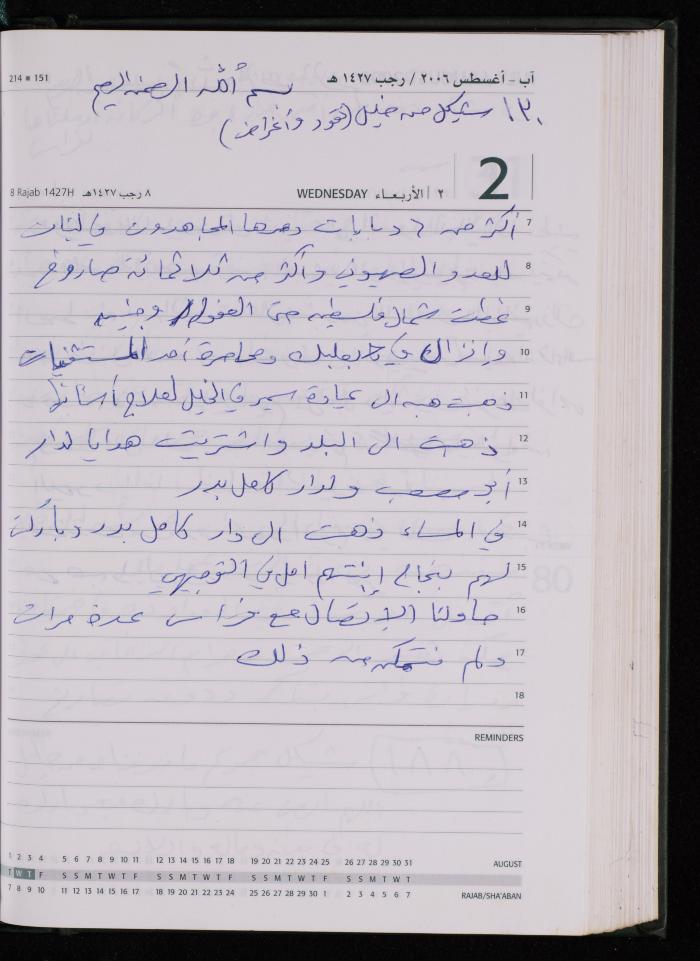 214 ■ 151
آب - أغسطس ٢٠٠٦ / رجب ١٤٢٧ هـ
بسم الله الرحمن الرحيم
١٢٠ شيكل من خليل (نقود وأغراض)
8 Rajab 1427H ٨ رجب ١٤٢٧هـ WEDNESDAY ٢ الأربعاء 2
7 أكثر من ٦ دبابات دمرها المجاهدون في لبنان
8 للعدو الصهيوني وأكثر من ثلاثمائة صاروخ
9 غطت شمال فلسطين حتى العفولة وجنين
10 وإنزال في بعلبك ومحاصرة أحد المستشفيات
11 ذهبت هبه الى عيادة سمير في الخليل لعلاج أسنانها
12 ذهبت الى البلد واشتريت هدايا لدار
13 أبو مصعب ولدار كامل بدر
14 في المساء ذهبت الى دار كامل بدر وباركت
15 لهم بنجاح إبنتهم امل في التوجيهي
16 حاولنا الإتصال مع فراس عدة مرات
17 ولم نتمكن من ذلك
18
REMINDERS
1 2 3 4 5 6 7 8 9 10 11 12 13 14 15 16 17 18 19 20 21 22 23 24 25 26 27 28 29 30 31 AUGUST
T W T F S S M T W T F S S M T W T F S S M T W T F S S M T W T
7 8 9 10 11 12 13 14 15 16 17 18 19 20 21 22 23 24 25 26 27 28 29 30 1 2 3 4 5 6 7 RAJAB/SHA'ABAN